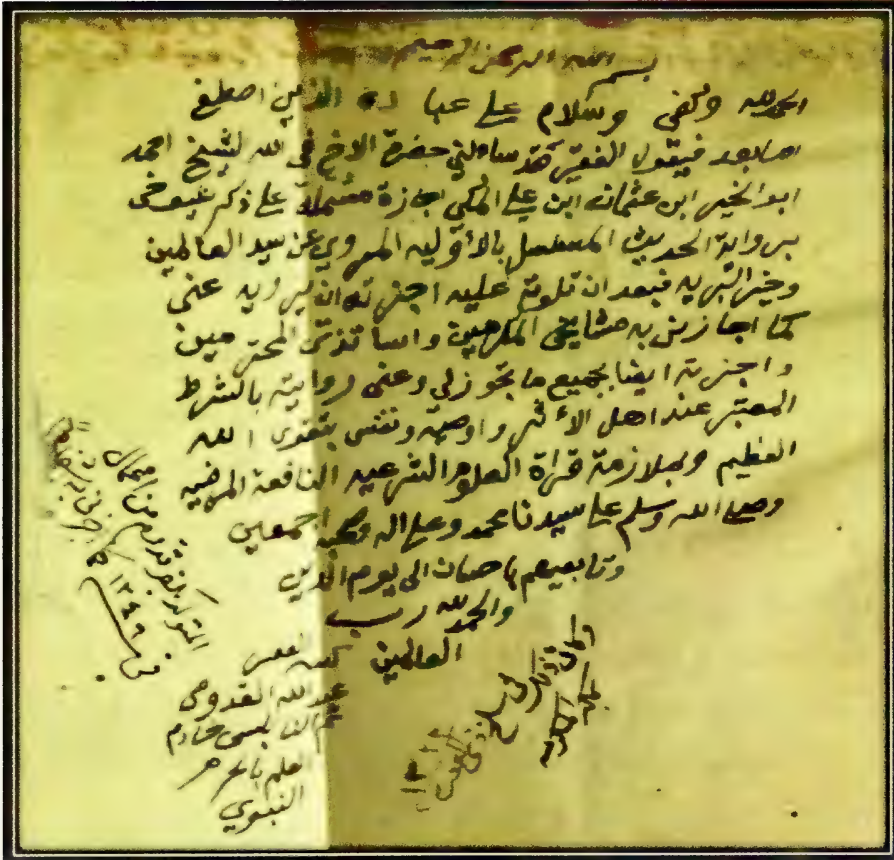 بسم الله الرحمن الرحيم
الحمد لله وكفى وسلام على عباده الذين اصطفى
اما بعد فيقول الفقير قد ساءلني حضرة الاخ في الله الشيخ احمد
ابو الخير ابن عثمان ابن علي المكي اجازة مشتملة على ذكر شيوخي
برواية الحديث المسلسل بالأوليه المروي عن سيد العالمين
وخير البريه فبعد ان تلوته عليه اجزته ان يرويه عني
كما اجازني به مشايخي المكرمين واساتذتي المحترمين
واجزته ايضا بجميع ما تجوز لي وعني روايته بالشرط
المعتبر عند اهل الأثر واوصيه ونفسي بتقوى الله
العظيم وبملازمة قراة العلوم الشرعيه النافعة المرضيه
وصلى الله وسلم على سيدنا محمد وعلى اله وصحبه اجمعين
وتابعيهم باحسان الى يوم الدين
والحمد لله رب
العالمين كتبه الفقير
عبد الله القدومي
النابلسي خادم
العلم بالحرم
النبوي